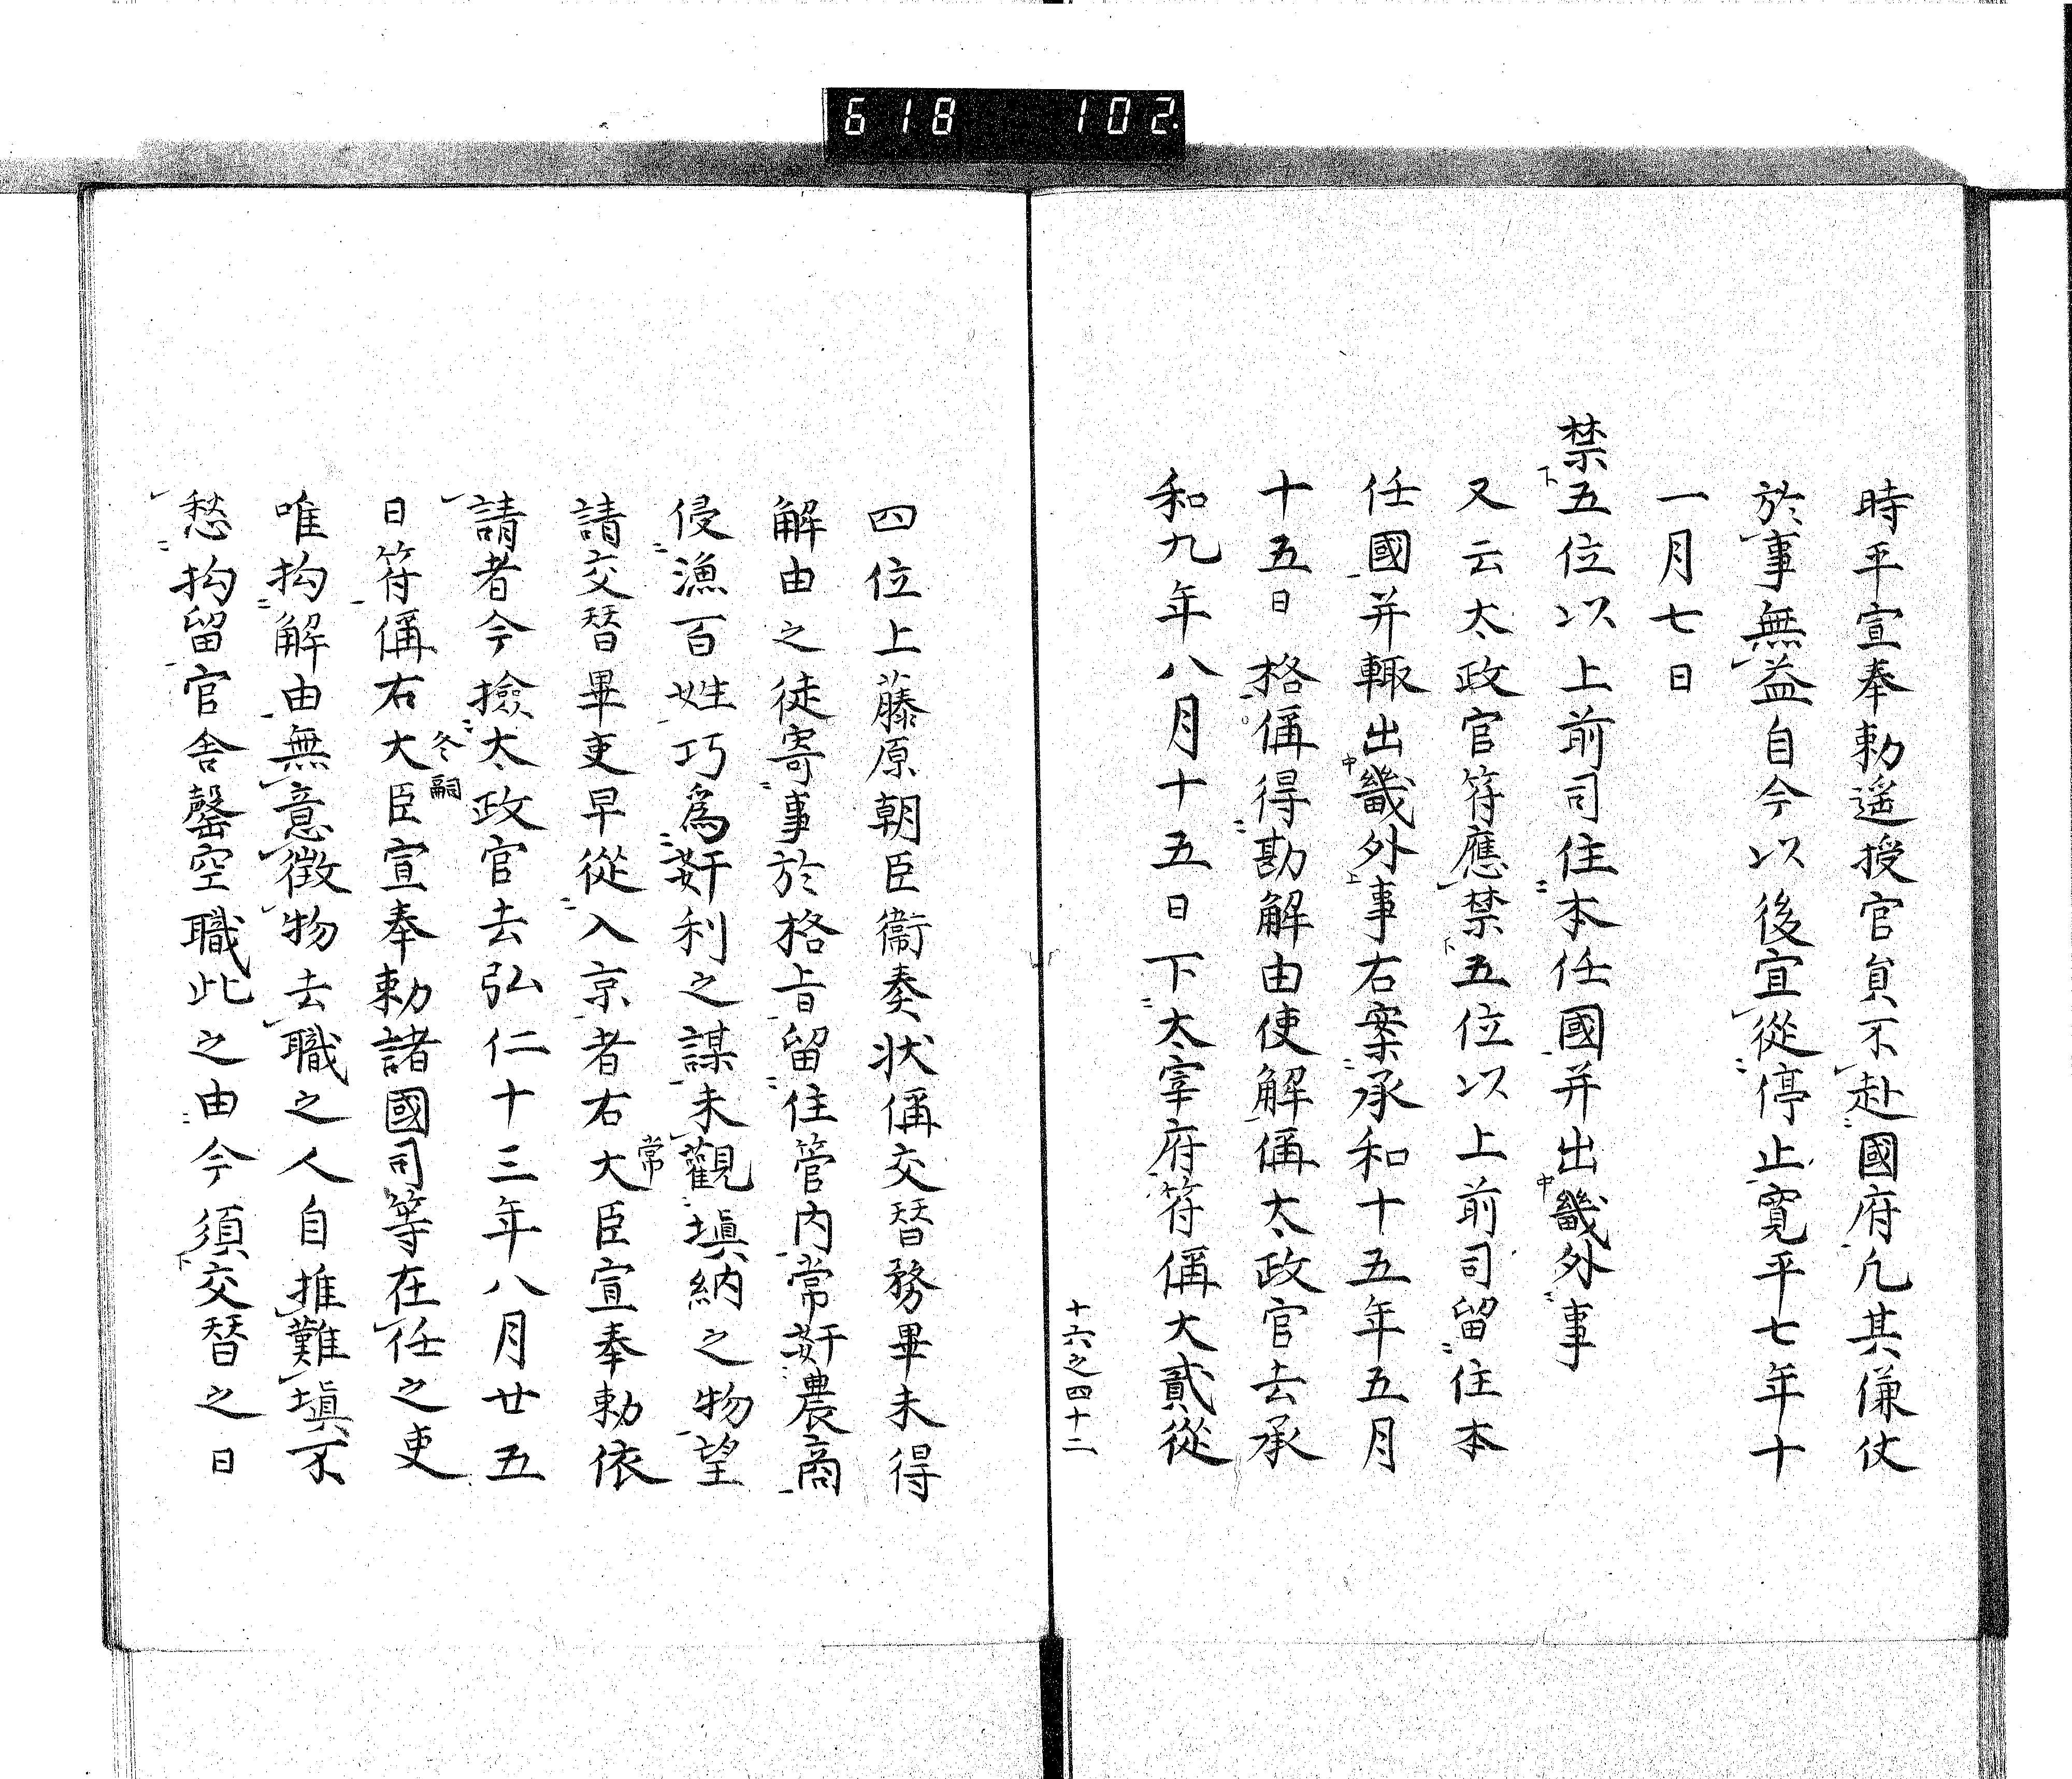 618 102.
時平宣奉勅遥授官員不赴國府凢其傔仗
於事無益自今以後宜從停止寛平七年十
一月七日
禁五位以上前司住本任國并出畿外事
又云太政官符應禁五位以上前司留住本
任國并輙出畿外事右案承和十五年五月
十五日格偁得勘解由使解偁太政官去承
和九年八月十五日下太宰府符偁大貳從
十六之四十二
四位上藤原朝臣衞奏状偁交替務畢未得
解由之徒寄事於格旨留住管内常妍農商
侵漁百姓巧爲姧利之謀未觀填納之物望
常
請交替畢吏早從入京者右大臣宣奉勅依
請者今撿太政官去弘仁十三年八月廿五
冬嗣
日符偁右大臣宣奉勅諸國司等在任之吏
唯拘解由無意徴物去職之人自推難填不
愁拘留官舎罄空職此之由今須交替之日